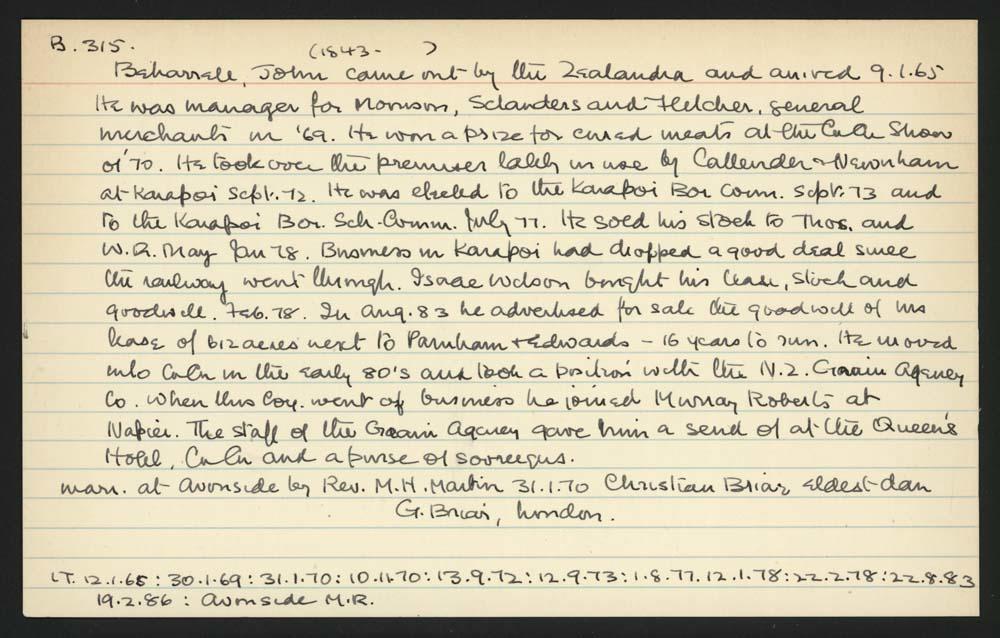 B. 315. (1843- )
Beharrell, John came out by the Zealandia and arived 9.1.65
He was manager for Morrison, Sclanders and Fletcher, general
merchants in '69. He won a prize for cured meats at the ChCh Show
of '70. He took over the premises lately in use by Callender & Newnham
at Kaiapoi Sept. 72. He was elected to the Kaiapoi Bor Coun. Sept. 73 and
to the Kaiapoi Bor. Sch. Comm. July 77. He soed his stock to Thos. and
W.R. May Jan 78. Business in Kaiapoi had dropped a good deal since
the railway went through. Isaac Wilson bought his lease, stock and
goodwill. Feb. 78. In Aug. 83 he advertised for sale the goodwill of his
lease of 612 acres next to Parnham & Edwards - 16 years to run. He moved
into ChCh in the early 80's and took a position with the N.Z. Grain Agency
Co. When this Coy. went of business he joined Murray Roberts at
Napier. The staff of the Grain Agency gave him a send of at the Queen's
Hotel, ChCh and a purse of sovreigns.
marr. at Avonside by Rev. M.H. Martin 31.1.70 Christian Briar eldest dau
G. Briar, London.
LT. 12.1.65 : 30.1.69 : 31.1.70 : 10.11.70 : 13.9.72 : 12.9.73 : 1.8.77. 12.1.78 : 22.2.78 : 22.8.83
19.2.86 : Avonside M.R.